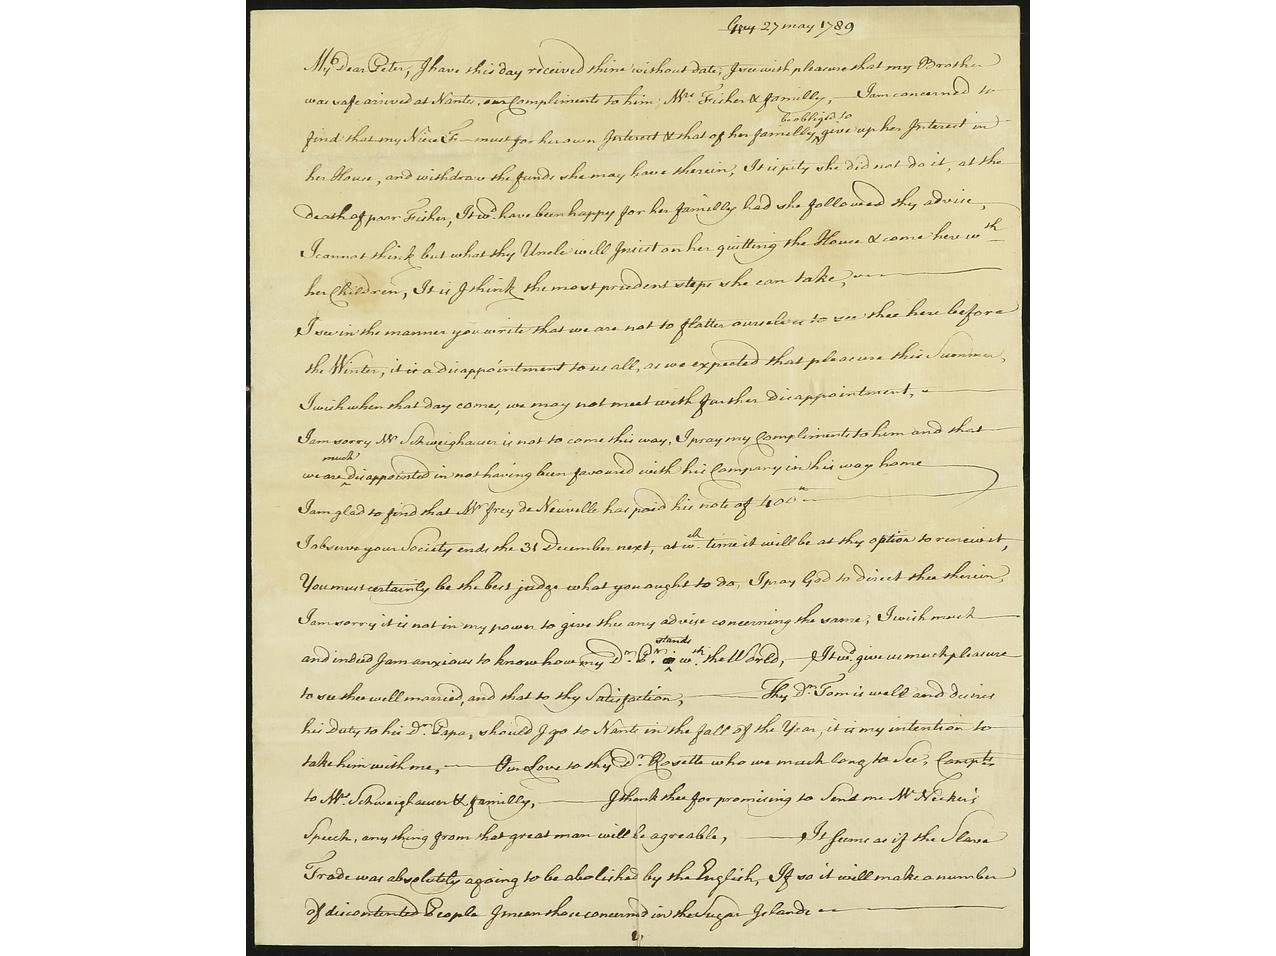 Guy 27 may 1789
My Dear Peter, I have this day received thine without date; I see with pleasure that my Brother
was safe arrived at Nants, our Compliments to him, Mrs. Fisher & familly, I am concerned to
be oblig'd to
find that my Niece F— must for her own Interest & that of her familly ^ give up her Interest in
her House, and withdraw the funds she may have therein, It is pity she did not do it, at the
death of poor Fisher, It wd. have been happy for her familly had she followed thy advise,
I cannot think but what thy Uncle will Insist on her quitting the House & come here wth
her Children, It is I think the most prudent steps she can take,
I see in the manner you write that we are not to flatter ourselves to see thee here before
the Winter, it is a disappointment to us all, as we expected that pleasure this Summer,
I wish when that day comes, we may not meet with further disappointment,
I am sorry Mr Schweighauser is not to come this way, I pray my Compliments to him and that
much
we are ^ disappointed in not having been favoured with his Company in his way home
I am glad to find that Mr Frey de Neuville has paid his note of 400
I observe your Society ends the 31 December next, at wch. time it will be at thy option to renew it,
You must certainly be the best judge what you ought to do, I pray God to direct thee therein,
I am sorry it is not in my power to give thee any advise concerning the same, I wish much
stands
and indeed I am anxious to know how my Dr. Pr. ^ wth. the World, It wd. give us much pleasure
to see thee well married, and that to thy Satisfaction, Thy Dr. Tom is well and desires
his Duty to his Dr. Papa, should I go to Nants in the fall of the Year, it is my intention to
take him with me, Our Love to thy Dr. Rosette who we much long to See, Compts
to Mr. Schweighauser & familly, I thank thee for promising to Send me Mr Necker's
Speech, any thing from that great man will be agreable, It seems as if the Slave
Trade was absolutely agoing to be abolished by the English, If so it will make a number
of discontented People I mean those concerned in the Sugar Islands